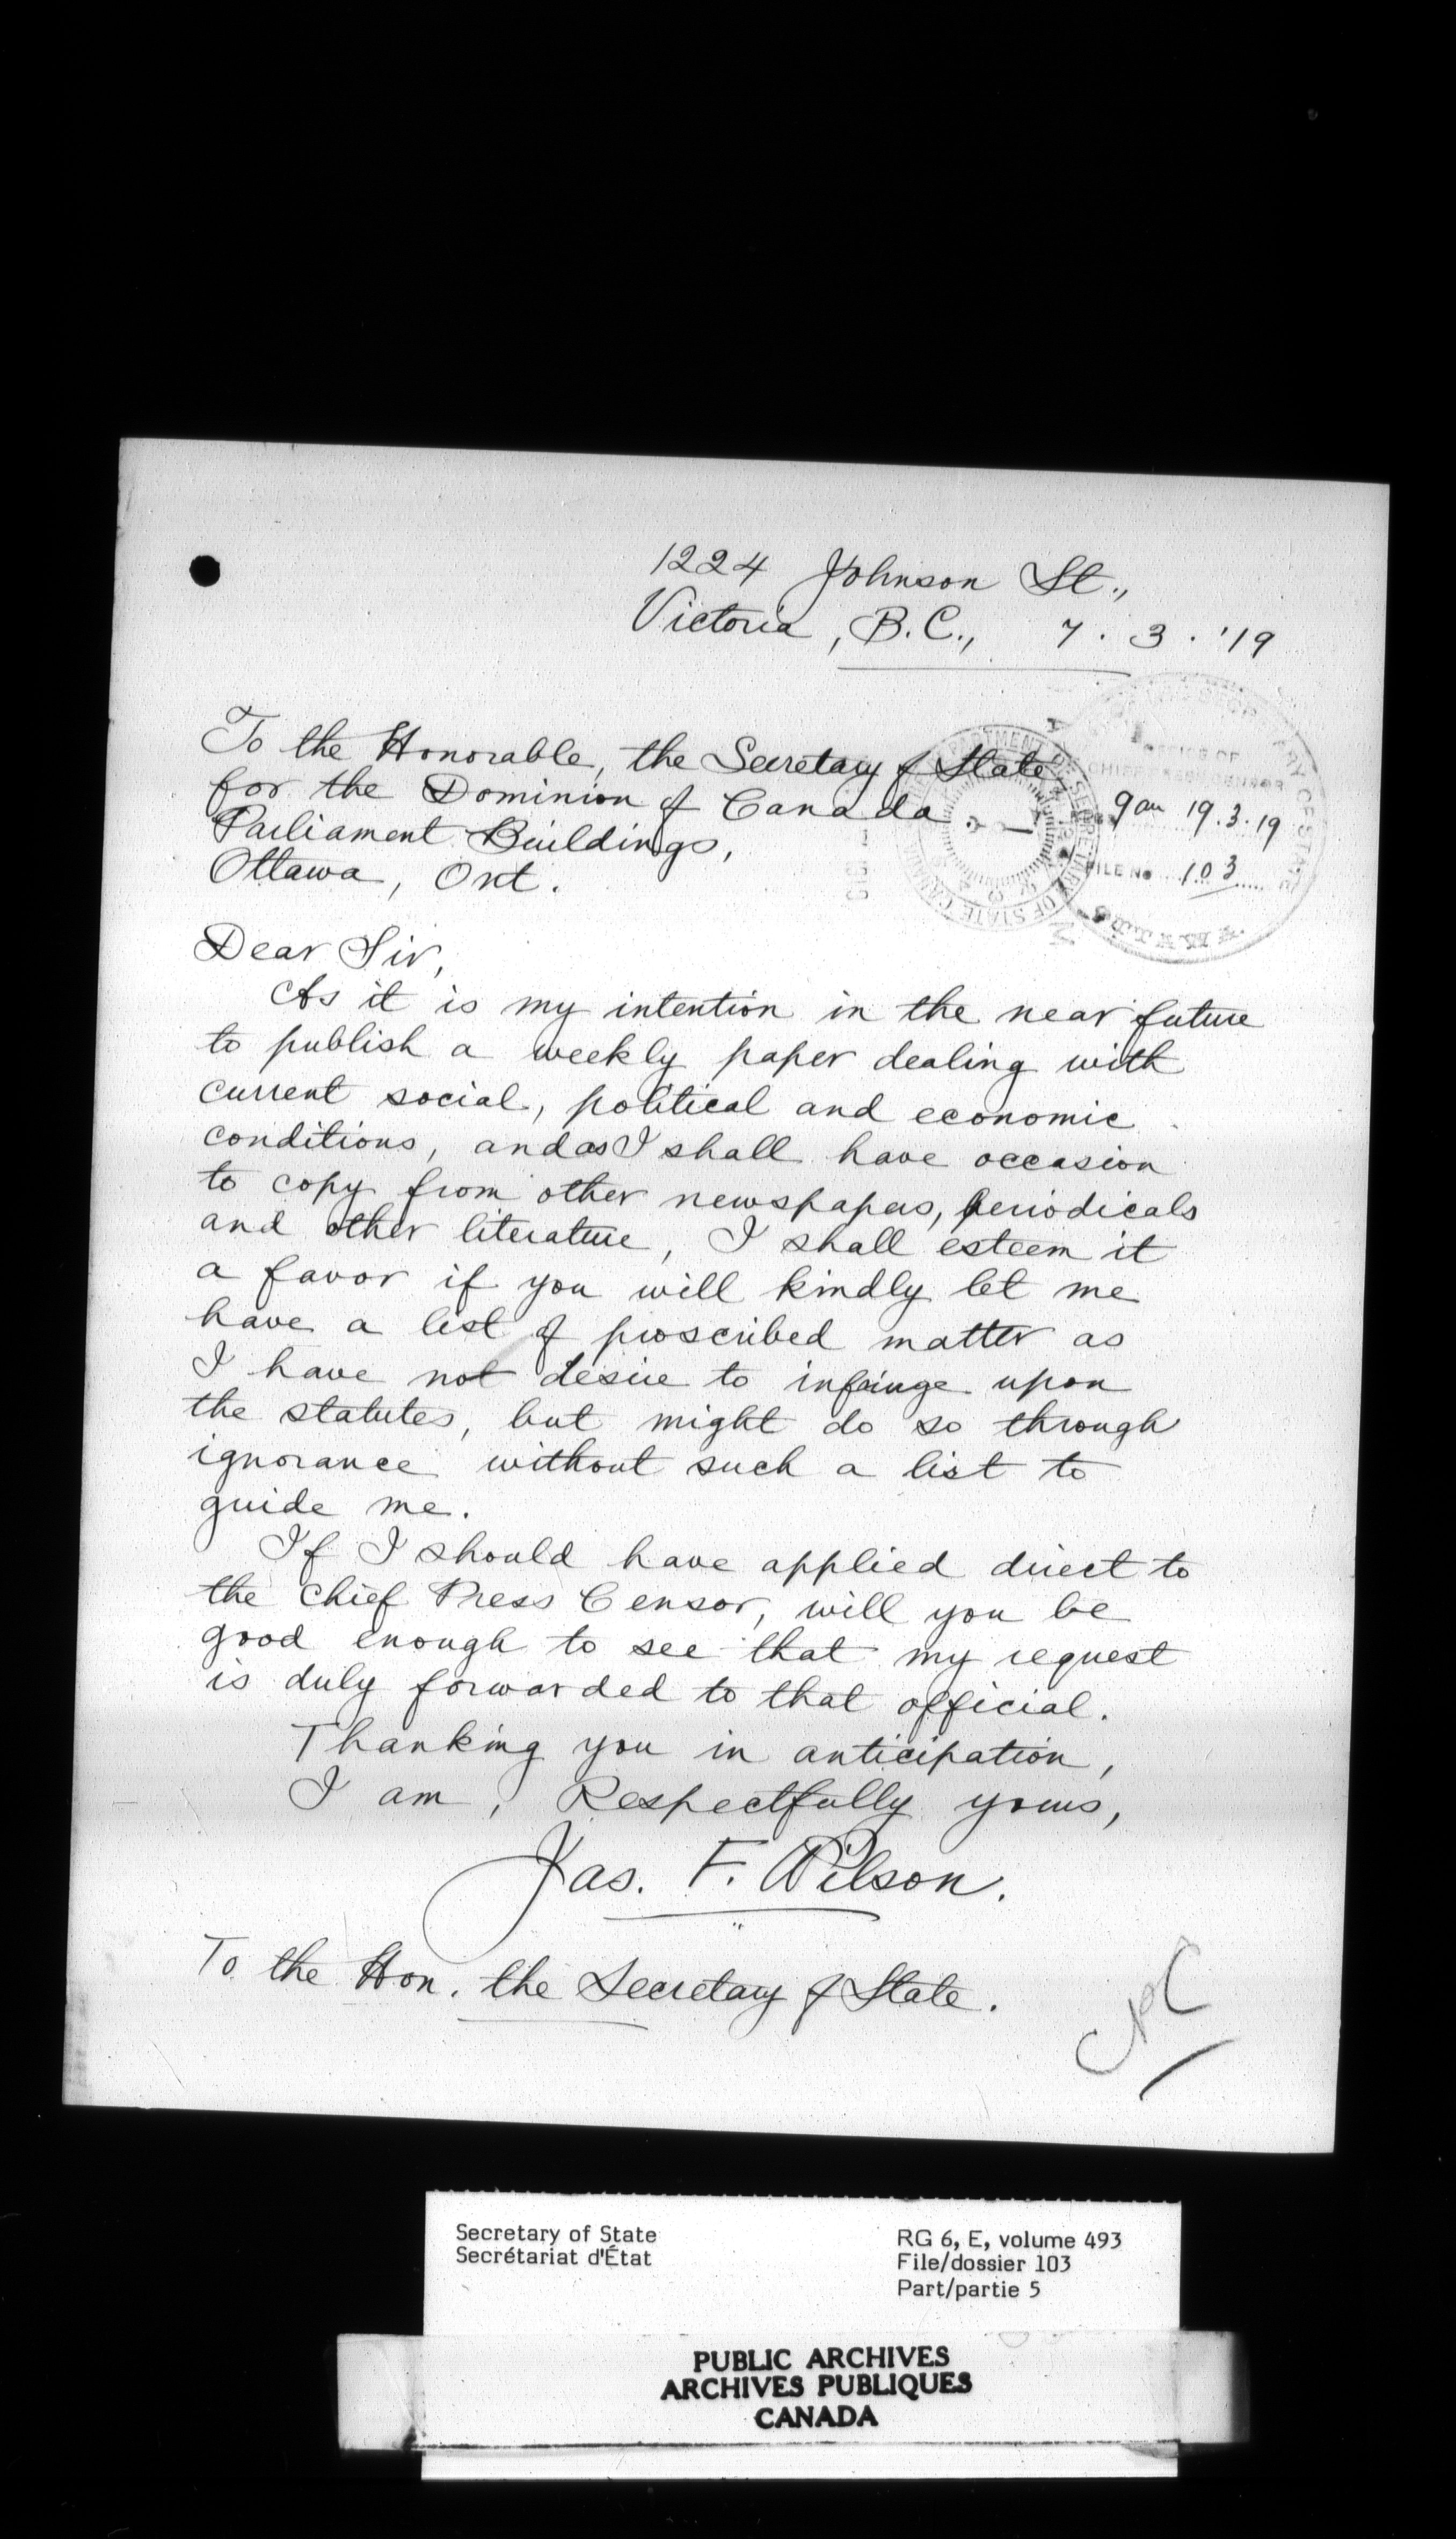 1224 Johnson St.,
Victoria, B.C., 7. 3. '19
To the Honorable, the Secretary of State
for the Dominion of Canada.
Parliament Buildings,
Ottawa, Ont.
DEPARTMENT OF SECRETARY OF STATE CANADA
OFFICE OF
CHIEF PRESS CENSOR
9am 19.3.19
FILE No 103
OTTAWA
Dear Sir,
As it is my intention in the near future
to publish a weekly paper dealing with
current social, political and economic
conditions, and as I shall have occasion
to copy from other newspapers, periodicals
and other literature, I shall esteem it
a favor if you will kindly let me
have a list of proscribed matter as
I have not desire to infringe upon
the statutes, but might do so through
ignorance without such a list to
guide me.
If I should have applied direct to
the Chief Press Censor, will you be
good enough to see that my request
is duly forwarded to that official.
Thanking you in anticipation,
I am, Respectfully yours,
Jas. F. Wilson.
To the Hon. the Secretary of State.
Secretary of State
Secrétariat d'État
RG 6, E, volume 493
File/dossier 103
Part/partie 5
PUBLIC ARCHIVES
ARCHIVES PUBLIQUES
CANADA